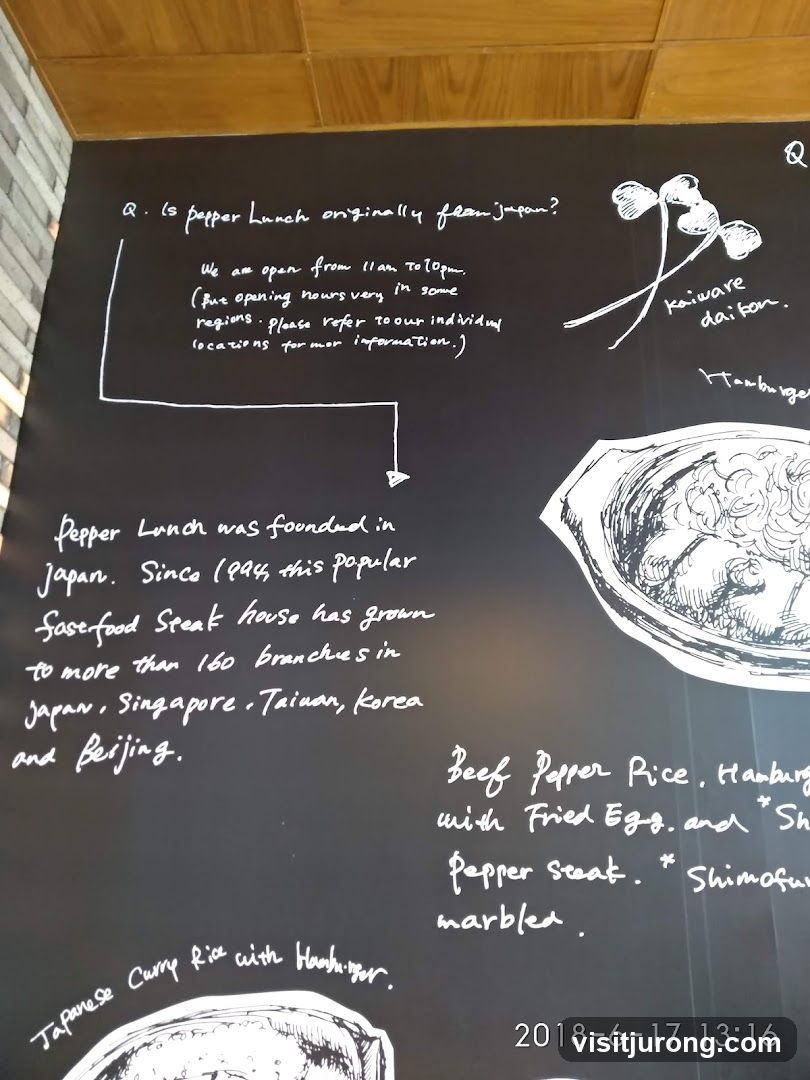 Q
Q. Is pepper Lunch originally from japan?
We are open from 11am to 10pm.
(But opening hours very in some
regions. please refer to our individual
locations for mor information.)
Kaiware
daikon.
Hamburge
Pepper Lunch was founded in
Japan. Since 1994, this popular
fastfood steak house has grown
to more than 160 branches in
Japan, Singapore, Taiwan, Korea
and Beijing.
Beef Pepper Rice, Hamburg
with Fried Egg. and *Sh
Pepper steak. *Shimofu
marbled.
Japanese Curry Rice with Hamburger.
2018-6-17 13:16
visitjurong.com